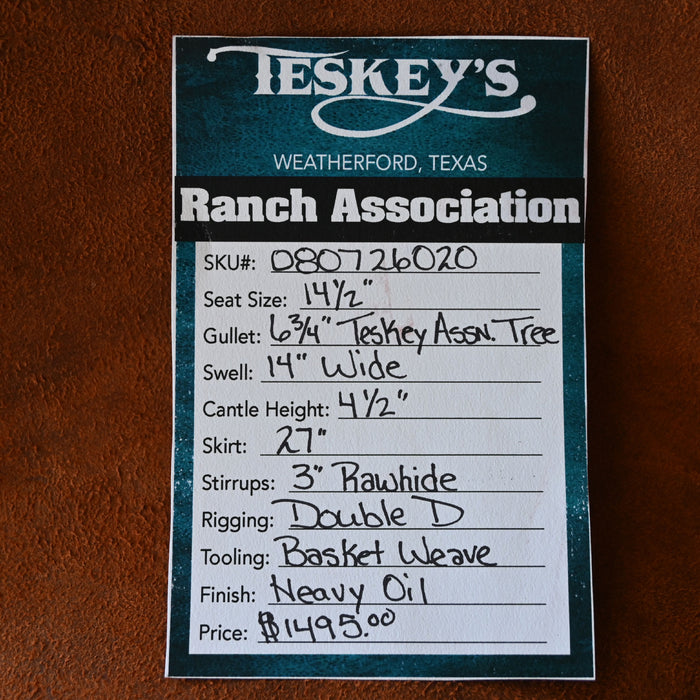 TESKEY'S
WEATHERFORD, TEXAS
Ranch Association
SKU#: 080726020
Seat Size: 14½"
Gullet: 6¾" Teskey Assn. Tree
Swell: 14" Wide
Cantle Height: 4½"
Skirt: 27"
Stirrups: 3" Rawhide
Rigging: Double D
Tooling: Basket Weave
Finish: Heavy Oil
Price: $1495.00